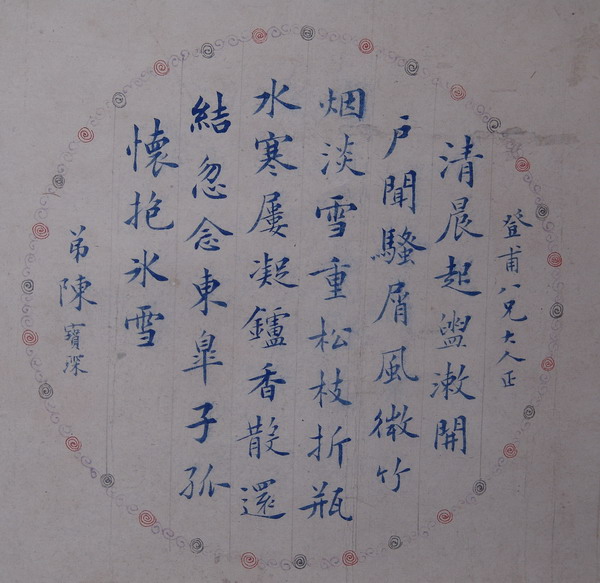 登甫八兄大人正
清晨起盥漱開
戶聞騷屑風微竹
烟淡雪重松枝折瓶
水寒屢凝鑪香散還
結忽念東皐子孤
懷抱氷雪
弟陳寶琛